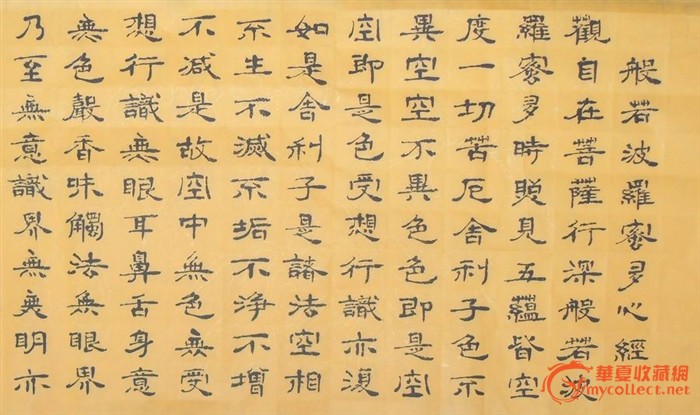 般若波羅蜜多心經
觀自在菩薩行深般若波
羅蜜多時照見五蘊皆空
度一切苦厄舍利子色不
異空空不異色色即是空
空即是色受想行識亦復
如是舍利子是諸法空相
不生不滅不垢不淨不增
不減是故空中無色無受
想行識無眼耳鼻舌身意
無色聲香味觸法無眼界
乃至無意識界無無明亦
華夏收藏網
mycollect.net